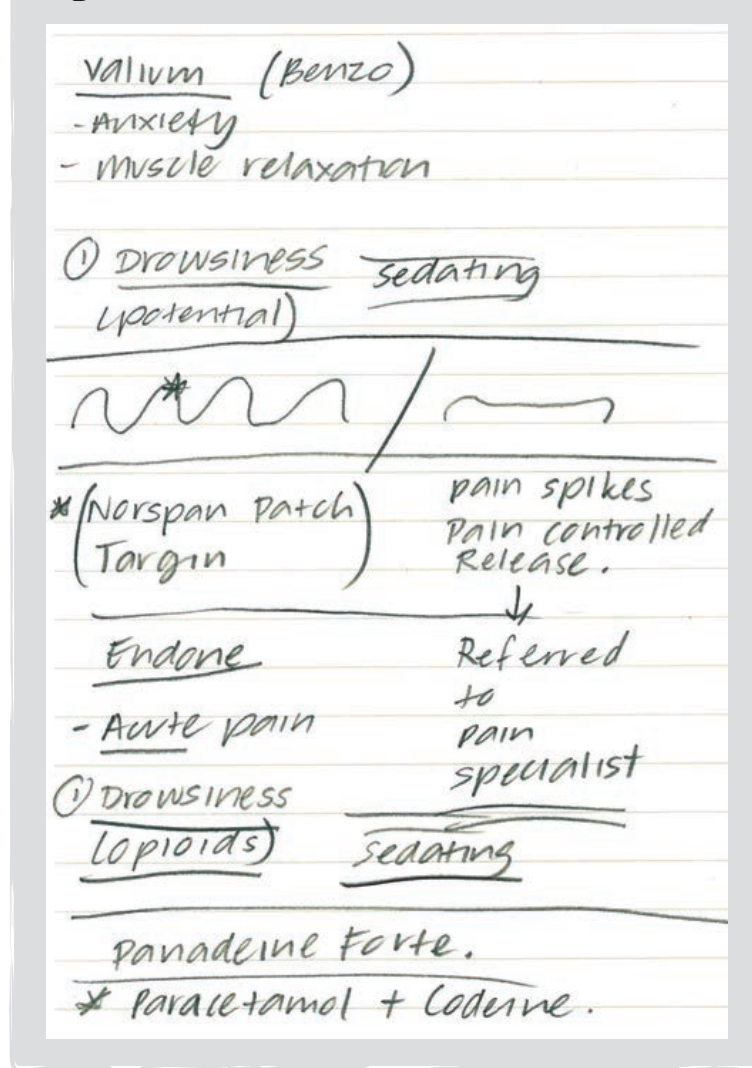 Valium (Benzo)
- Anxiety
- Muscle relaxation
① Drowsiness sedating
(potential)
*
* (Norspan Patch
Targin)
pain spikes
Pain controlled
Release.
Endone
- Acute pain
① Drowsiness
(opioids) sedating
Referred
to
pain
specialist
Panadeine Forte.
* Paracetamol + Codeine.